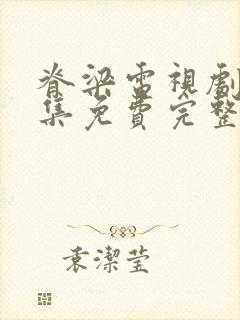 脊梁電視劇
集免費完整
袁潔瑩